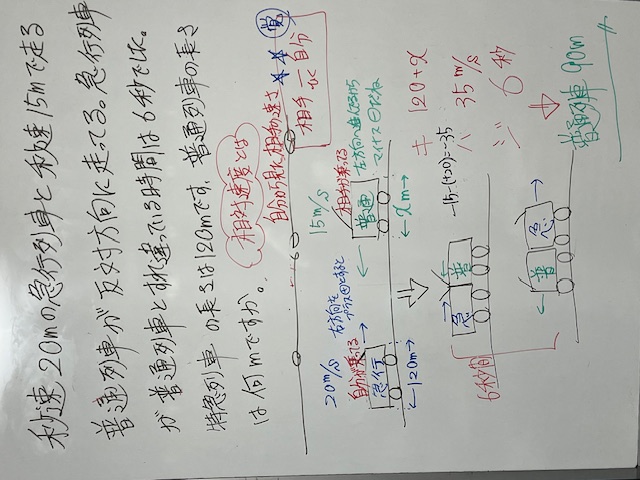 秒速20mの急行列車と秒速15mで走る
普通列車が反対方向に走ってる。急行列車
が普通列車とすれ違っている時間は6秒でした。
特急列車の長さは120mです。普通列車の長さ
は何mですか。
相対速度とは
自分から見た相手の速さ
覚
相手 - 自分
20m/s
右方向を
プラス⊕とすると
自分が乗ってる
急行
←120m→
15m/s
相手が乗ってる
左方向へ進んでるから
マイナス⊖だね
普通
←xm→
キ 120+x
-15-(+20)=-35
ハ 35m/s
ジ 6秒
急
普
6秒間
普
急
普通列車 90m